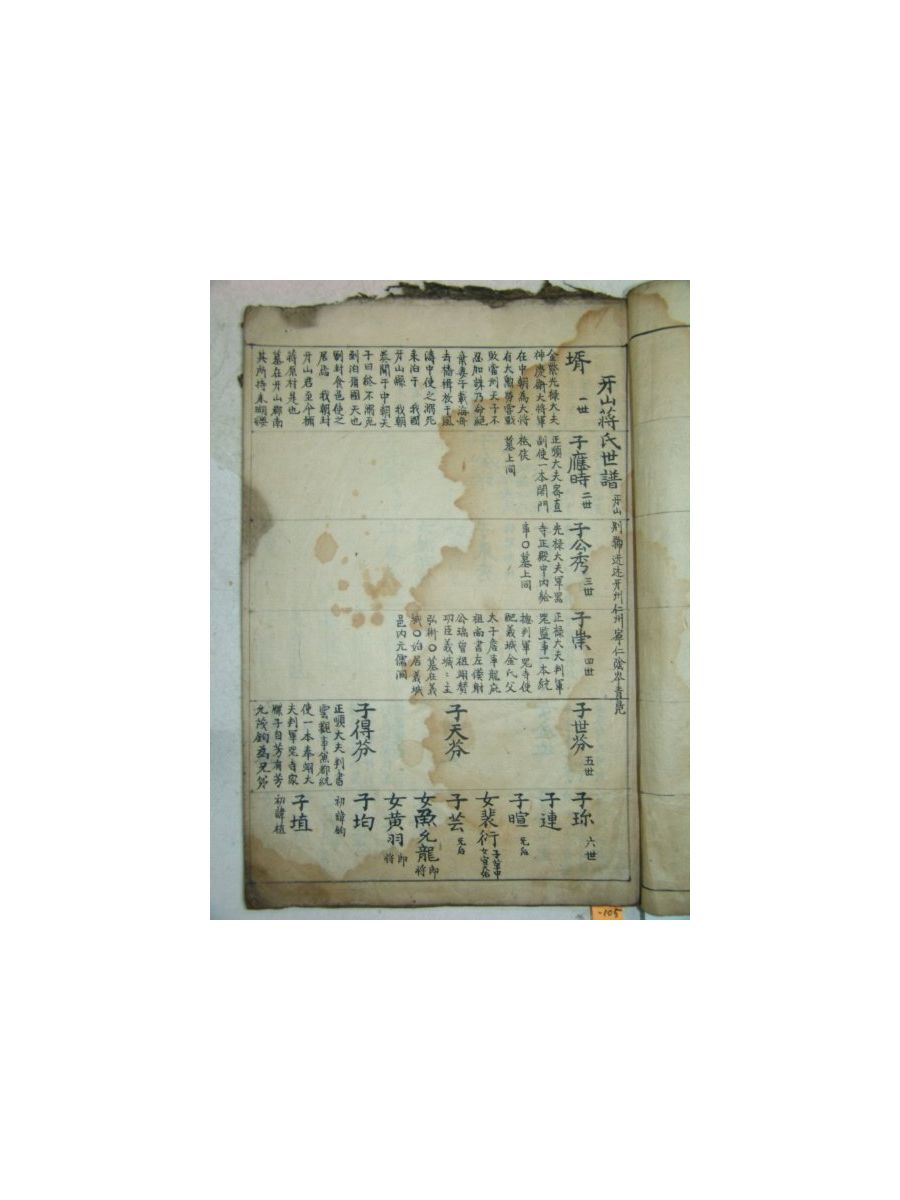 牙山蔣氏世譜 牙山別號
壻 一世
金紫光祿大夫
神慶衛大將軍
在中朝爲大將
有大勳勞雲戰
敗當州天子不
忍加誅乃命絶
棄妻子載海舟
去檣楫放于風
濤中使之溺死
來泊于 我國
牙山縣 我朝
奏聞于中朝天
子曰終不溺死
到泊藩國天也
劃封食邑使之
居焉 我朝封
牙山君至今稱
蔣原村是也
墓在牙山縣南
其所持來
子應時 二世
正順大夫密直
副使一本閤門
祗侯
墓上同
子公秀 三世
光祿大夫軍器
寺正殿中內給
事○墓上同
子崇 四世
正祿大夫判軍
器監事一本統
摠判軍器寺使
配義城金氏父
太子詹事龍庇
祖尚書左僕射
公瑞曾祖翊贊
功臣義城主
弘術○墓在義
城○始居義城
邑內元儒洞
子世芬 五世
子天芬
子得芬
正順大夫判書
雲觀事兼都統
使一本奉翊大
夫判軍器寺家
牒子自芳有芳
允茂鈞爲兄弟
子珎 六世
子連
子暄 无后
女裴衍
子芸 无后
女魚允龍 郎將
女黄羽 郎將
子均 初諱鈞
子埴 初諱植
-105